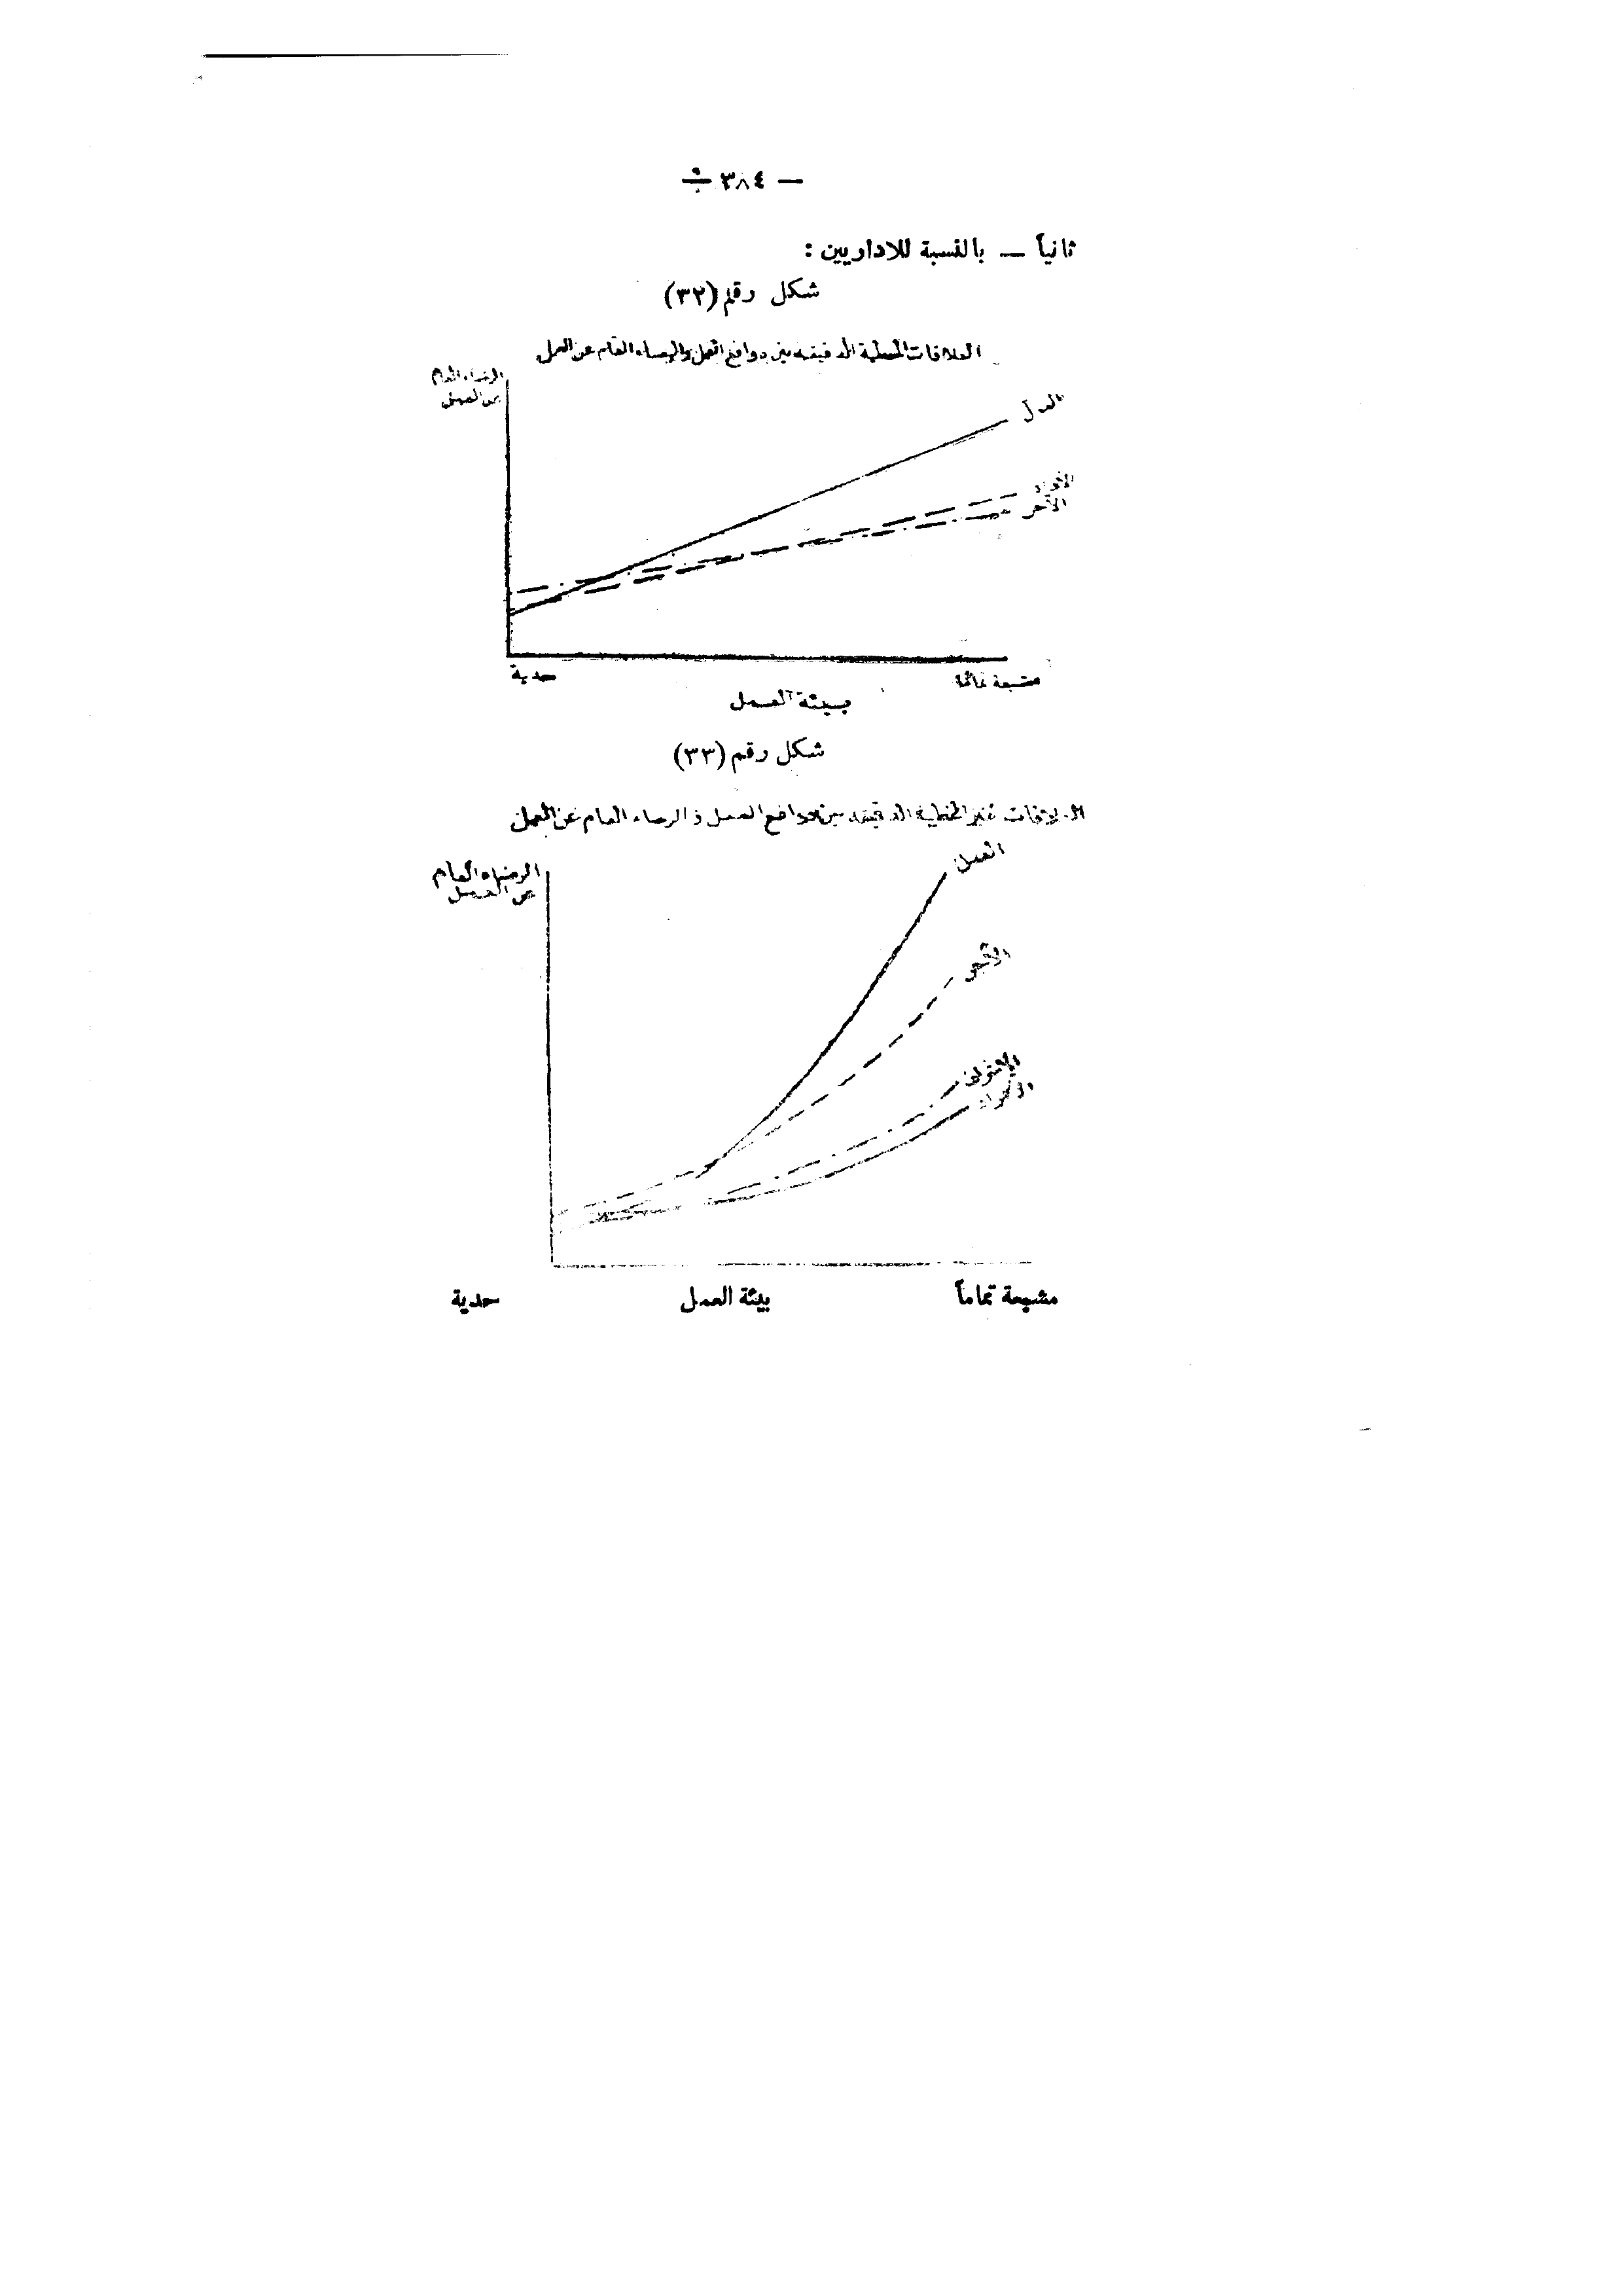 — ٣٨٤ —
ثانياً — بالنسبة للاداريين :
شكل رقم (٣٢)
العلاقات الخطية الدقيقة بين دوافع العمل والرضاء العام عن العمل
الرضاء العام
عن العمل
العمل
الأفراد
الأجر
حدية
مشبعة تماما
بيئة العمل
شكل رقم (٣٣)
العلاقات غير الخطية الدقيقة بين دوافع العمل و الرضاء العام عن العمل
الرضاء العام
عن العمل
العمل
الأجر
الإشراف
الأفراد
حدية
بيئة العمل
مشبعة تماماً